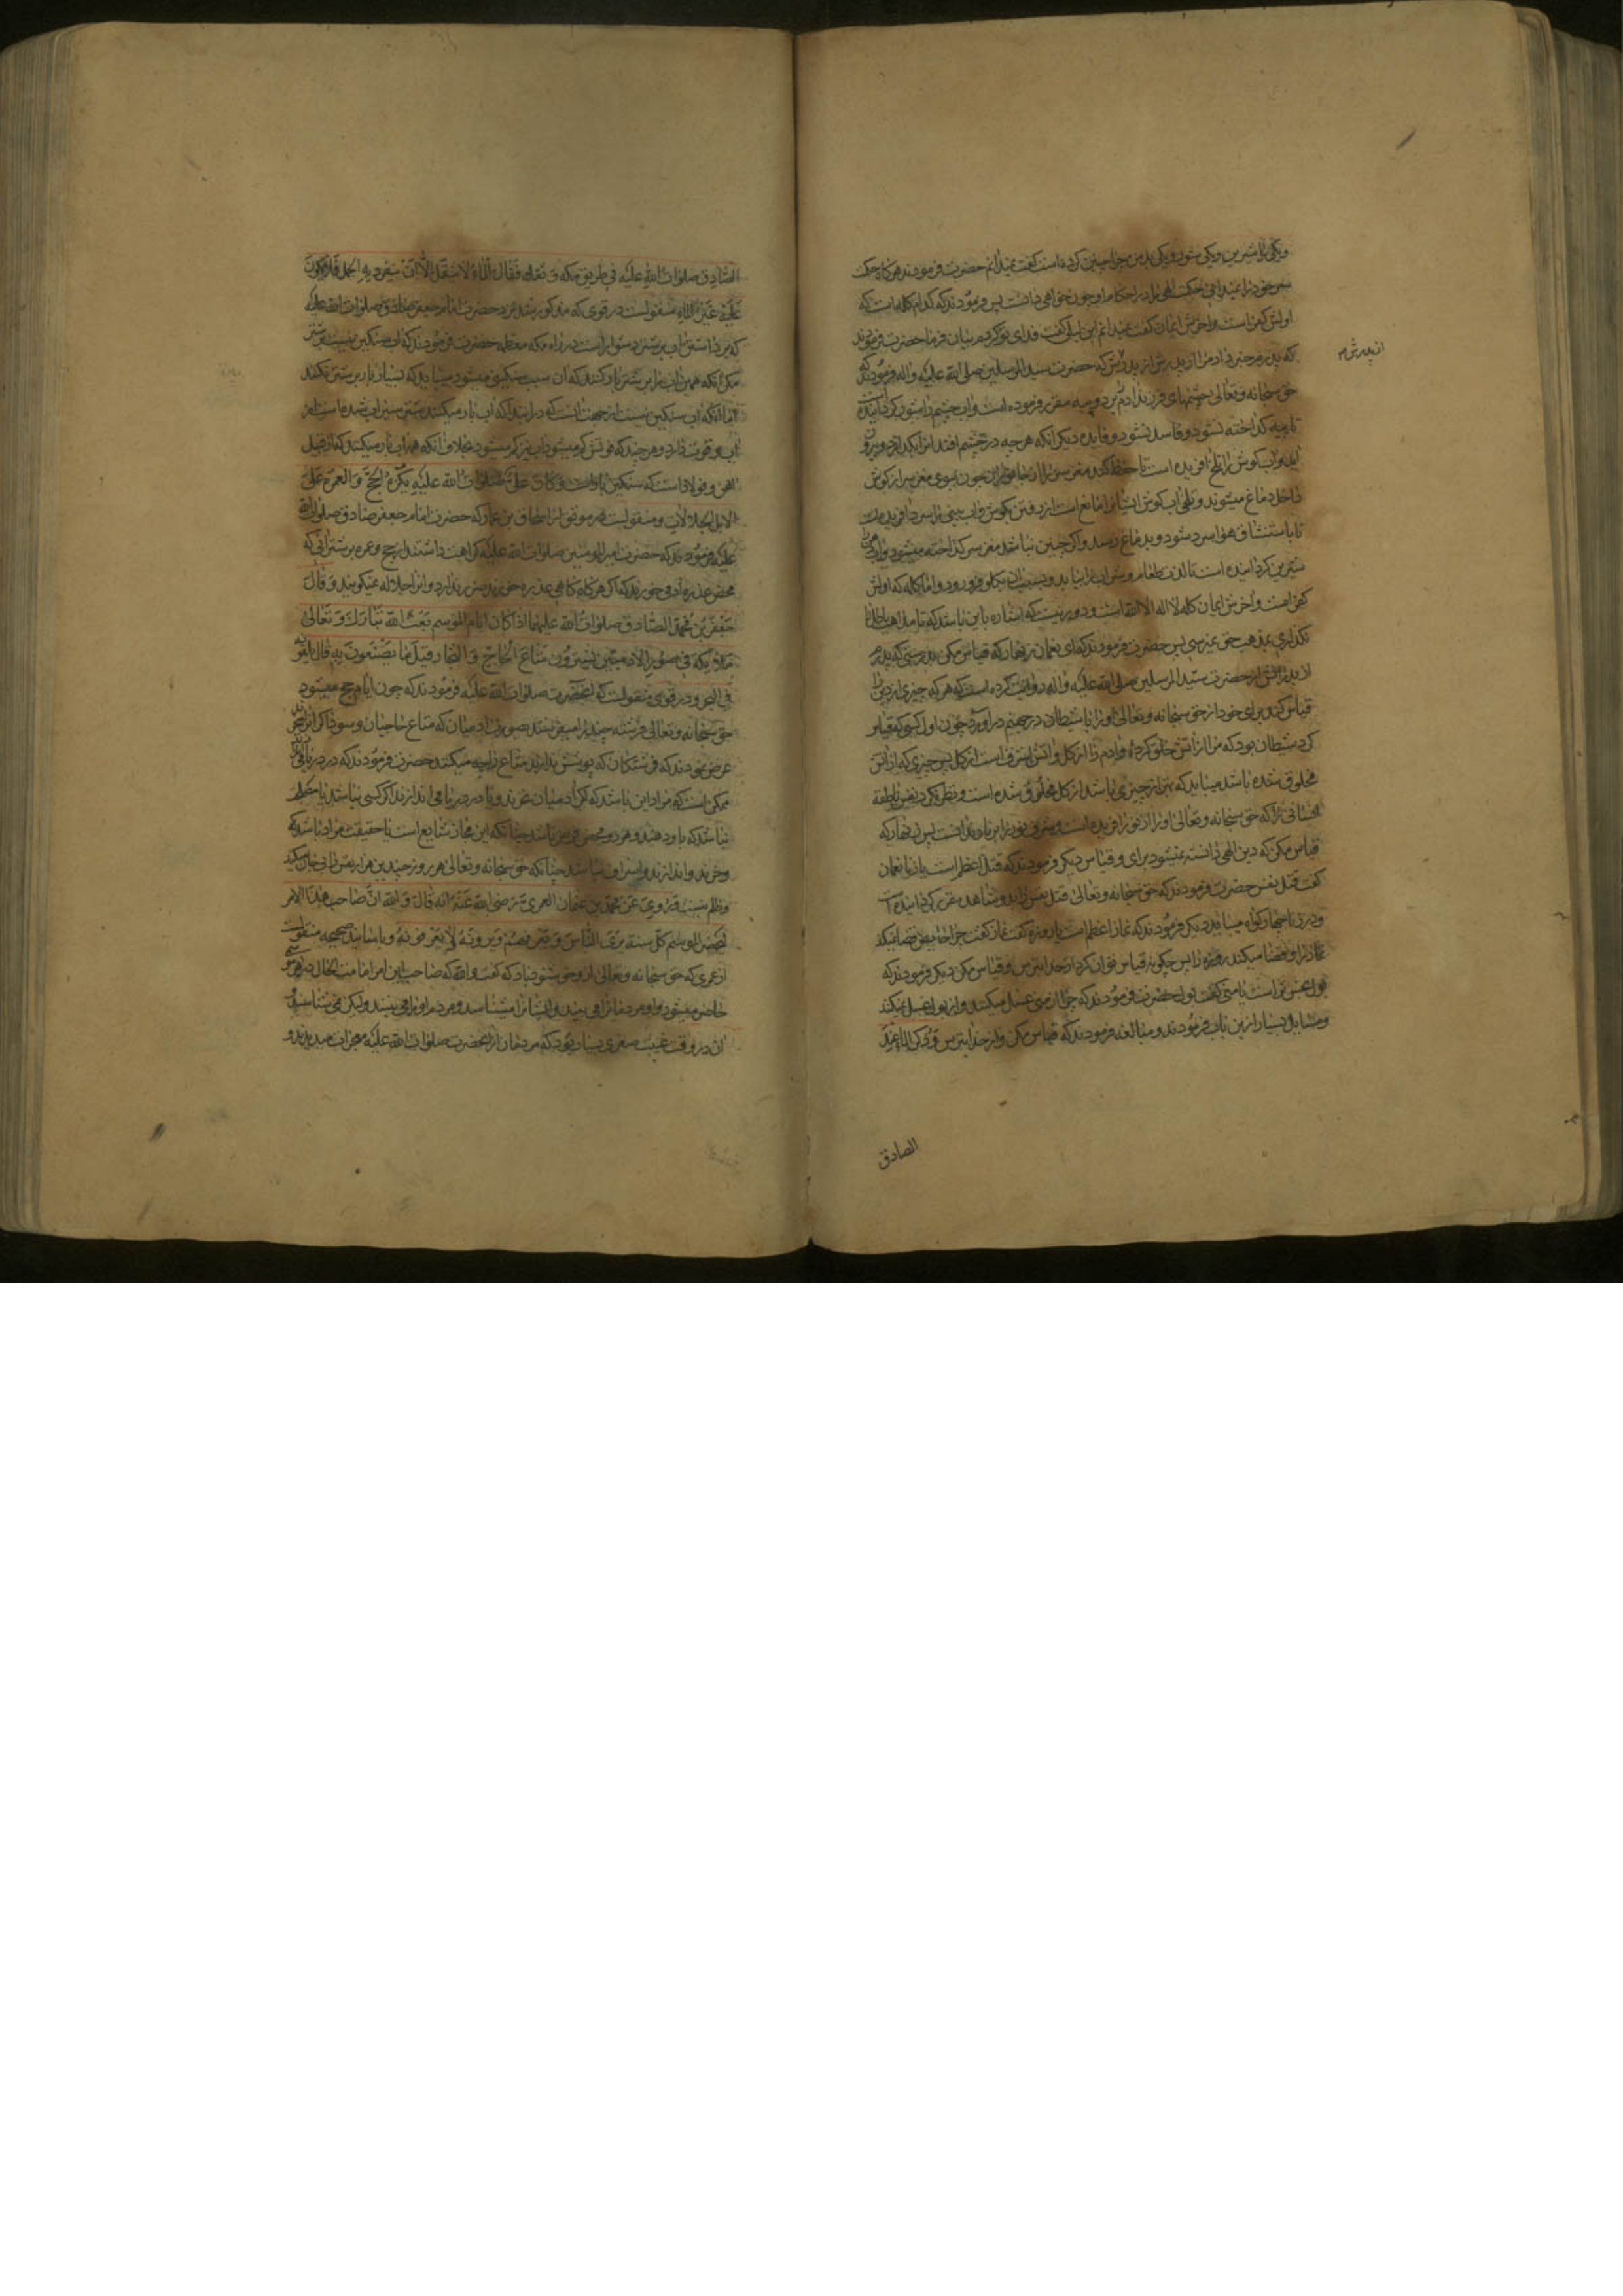 ویکی را شیرین ویکی شور ویکی بدمزه چرا چنین کرده است گفت نمیدانم حضرت فرمودند هرکاه حکمت
سر خود را نمیدانی حکمت الهی را در احکام او چون خواهی دانست پس فرمودند که کدام کلمه است که
اولش کفر است و اخرش ایمان گفت نمیدانم ابن ابی لیلی گفت فدای تو کردم بیان فرما حضرت فرمودند
که پدرم خبر داد مرا از پدرش از پدرش که حضرت سید المرسلین صلی الله علیه و اله فرمودند که
از پدرش م
حق سبحانه و تعالی چشمهای فرزند ادم را بر دو پیه مقرر فرموده است و اب چشم را شور کردانیده
تا پیه کداخته نشود و فاسد نشود و فایده دیکر انکه هرچه در چشم افتد انرا بکدازد و بیرون
اید و اب کوش را تلخ افریده است تا حفظ کند مغز سر را از جانوران چون بوی مغز سر از کوش
داخل دماغ میشوند و تلخی اب کوش ایشانرا مانع است از رفتن بکوش و اب بینی را سرد افریده است
تا باستنشاق هوا سرد شود و بدماغ رسد و اکر چنین نباشد مغز سر کداخته میشود و اب دهن را
شیرین کردانیده است تا لذت طعام و شراب را بیابد و بسبب ان بکلو فرو رود و اما کلمه که اولش
کفر است و اخرش ایمان کلمه لا اله الا الله است و دور نیست که اشاره باین باشد که تا مذاهب باطل را
نکذاری بمذهب حق نمیرسی پس حضرت فرمودند که ای نعمان زنهار که قیاس مکن بدرستی که پدرم
از پدرانش از حضرت سید المرسلین صلی الله علیه و اله روایت کرده است که هرکه چیزی از دین را
قیاس کند برای خود از حق سبحانه و تعالی او را با شیطان در جهنم در اورد چون اول کسی که قیاس
کرد شیطان بود که مرا از اتش خلق کرده و ادم را از کل و اتش اشرف است از کل پس چیزی که از اتش
مخلوق شده باشد میباید که بهتر از چیزی باشد که از کل مخلوق شده است و نظر نکرد بنفس ناطقه
انسانی را که حق سبحانه و تعالی او را از نور افریده است و شرف نور را بر نار ندانست پس زنهار که
قیاس مکن که دین الهی دانسته نمیشود برای و قیاس دیکر فرمودند که قتل اعظم است یا زنا نعمان
کفت قتل نفس حضرت فرمودند که حق سبحانه و تعالی در قتل نفس دو شاهد مقرر کردانیده است
و در زنا چهار کواه میباید دیکر فرمودند که نماز اعظم است یا روزه کفت نماز کفت چرا حایض قضا نمیکند
نماز را و قضا میکند روزه را پس چکونه قیاس توان کرد از خدا بترس و قیاس مکن دیکر فرمودند که
بول نجس تر است یا منی کفت بول حضرت فرمودند که چرا از منی غسل میکنند و از بول غسل نمیکنند
و مسایل بسیار ازین باب فرمودند و مبالغه فرمودند که قیاس مکن و از خدا بترس و ذکر الماء عند
الصادق
الصادق صلوات الله علیه فی طریق مکه و ثقله فقال الماء لا یثقل الا ان ینفرد به الجمل فلا یکون
علیه غیر الماء منقولست در قوی که مذکور شد نزد حضرت امام جعفر صادق صلوات الله علیه
که برداشتن اب بر شتر دشوار است در راه مکه معظمه حضرت فرمودند که اب سنکین نیست بر شتر
مکر انکه همین اب را بر شتر بار کنند که ان سبب سنکینی میشود میباید که بسیار بار بر شتر نکنند
اما انکه اب سنکین نیست از جهت انست که
اب و قوت دارد و هرچند که قوتش کم میشود اب نیز کم میشود بخلاف انکه همه اب بار میکنند که از قبیل
اهن و فولاد است که سنکین بار است و کان علی صلوات الله علیه یکره الحج و العمرة علی
الابل الجلالات و منقولست در موثق از اسحاق بن عمار که حضرت امام جعفر صادق صلوات الله
علیه فرمودند که حضرت امیر المومنین صلوات الله علیه کراهت داشتند از حج و عمره بر شترانی که
محض عذره آدمی خورند که اکر هر کاه کاهی عذره خورند ضرر ندارد و انرا جلاله نمیکویند و قال
جعفر بن محمد الصادق صلوات الله علیهما اذا کان ایام الموسم بعث الله تبارک و تعالی
ملائکة فی صور الادمیین یشترون متاع الحاج و التجار قیل ما یصنعون به قال یلقونه
فی البحر و در قوی منقولست که انحضرت صلوات الله علیه فرمودند که چون ایام حج میشود
حق سبحانه و تعالی فرشته چند را میفرستد بصورت ادمیان که متاع حاجیان و سوداکرانرا میخرند
عرض نمودند که فرشتکان که پوشش ندارند متاع را چه میکنند حضرت فرمودند که در دریا می اندازند
ممکن است که مراد این باشد که اکر ادمیان نخرند و یا در دریا می اندازند اکر کسی نباشد یا مضطر
نباشد که باو دهند و
و خرند و اندازند و اسراف نباشد چنانکه حق سبحانه و تعالی هر روز چندین هزار
و ظلم نیست و روی عن محمد بن عثمان العمری رضی الله عنه انه قال و الله ان صاحب هذا الامر
لیحضر الموسم کل سنة یری الناس و یعرفهم و یرونه و لا یعرفونه و باسانید صحیحه منقولست
از عمری که حق سبحانه و تعالی ازو خوشنود باد که کفت والله که صاحب این امر امامت الحال در هر موسمی
حاضر میشود و او مردمانرا می بیند و ایشانرا میشناسد و مردم او را می بینند ولیکن نمی شناسند و
ان در وقت غیبت صغری بسیار بود که مردمان از انحضرت صلوات الله علیه معجزات میدیدند و